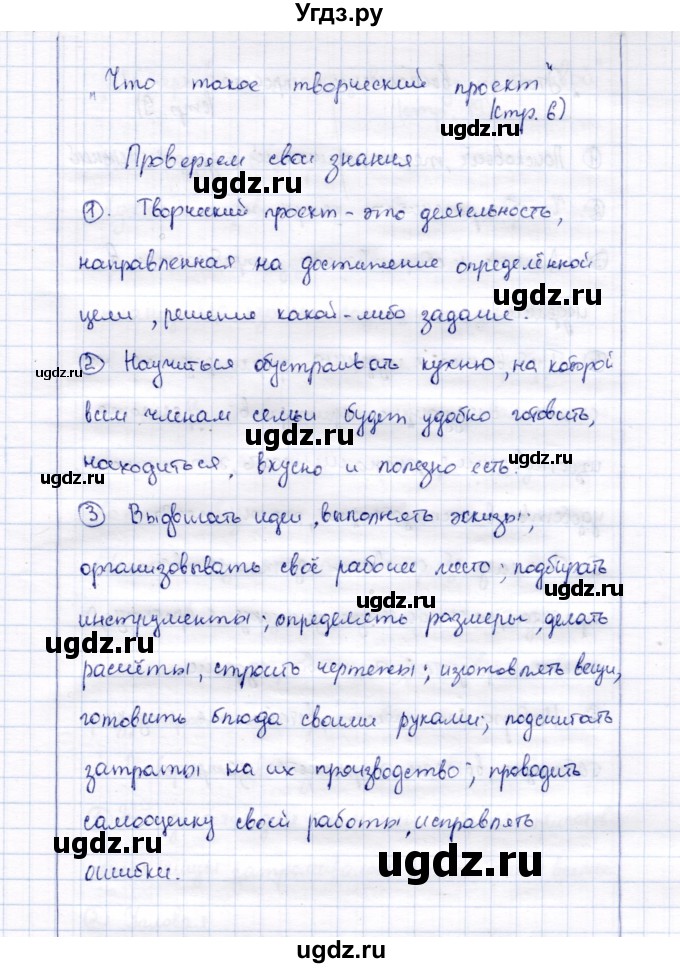 Угдз.ру
"Что такое творческий проект"
(стр. 6)
ugdz.ru
Проверяем свои знания
ugdz.ru
① Творческий проект - это деятельность,
направленная на достижение определённой
ugdz.ru
цели, решение какой-либо задание.
ugdz.ru
② Научиться обустраивать кухню, на которой
всем членам семьи будет удобно готовить,
ugdz.ru
ugdz.ru
находиться, вкусно и полезно есть.
ugdz.ru
③ Выдвигать идеи, выполнять эскизы;
ugdz.ru
организовывать своё рабочее место; подбирать
ugdz.ru
инструменты; определять размеры, делать
ugdz.ru
расчёты, строить чертежи; изготовлять вещи,
готовить блюда своими руками; подсчитать
затраты на их производство; проводить
самооценку своей работы, исправлять
ugdz.ru
ошибки.
ugdz.ru
ugdz.ru